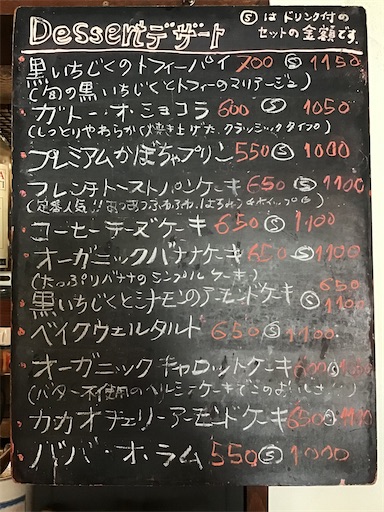 Dessert デザート
Ⓢ は ドリンク付の
セットの金額です。
黒いちじくのトフィーパイ 700 Ⓢ 1150
(旬の黒いちじくとトフィーのマリアージュ)
ガトー・オ・ショコラ 600 Ⓢ 1050
(しっとりやわらかく焼き上げた、クラッシックタイプ)
プレミアムかぼちゃプリン 550 Ⓢ 1000
フレンチトーストパンケーキ 650 Ⓢ 1100
(定番人気!!
コーヒーチーズケーキ 650 Ⓢ 1100
オーガニックバナナケーキ 650 Ⓢ 1100
(たっぷりバナナのシンプルケーキ)
黒いちじくとシナモンのアーモンドケーキ 650 Ⓢ 1100
ベイクウェルタルト 650 Ⓢ 1100
オーガニックキャロットケーキ
(バター不使用のヘルシーケーキでこのおいしさ
カカオチェリーアーモンドケーキ 650 Ⓢ 1100
ババ・オ・ラム 550 Ⓢ 1000